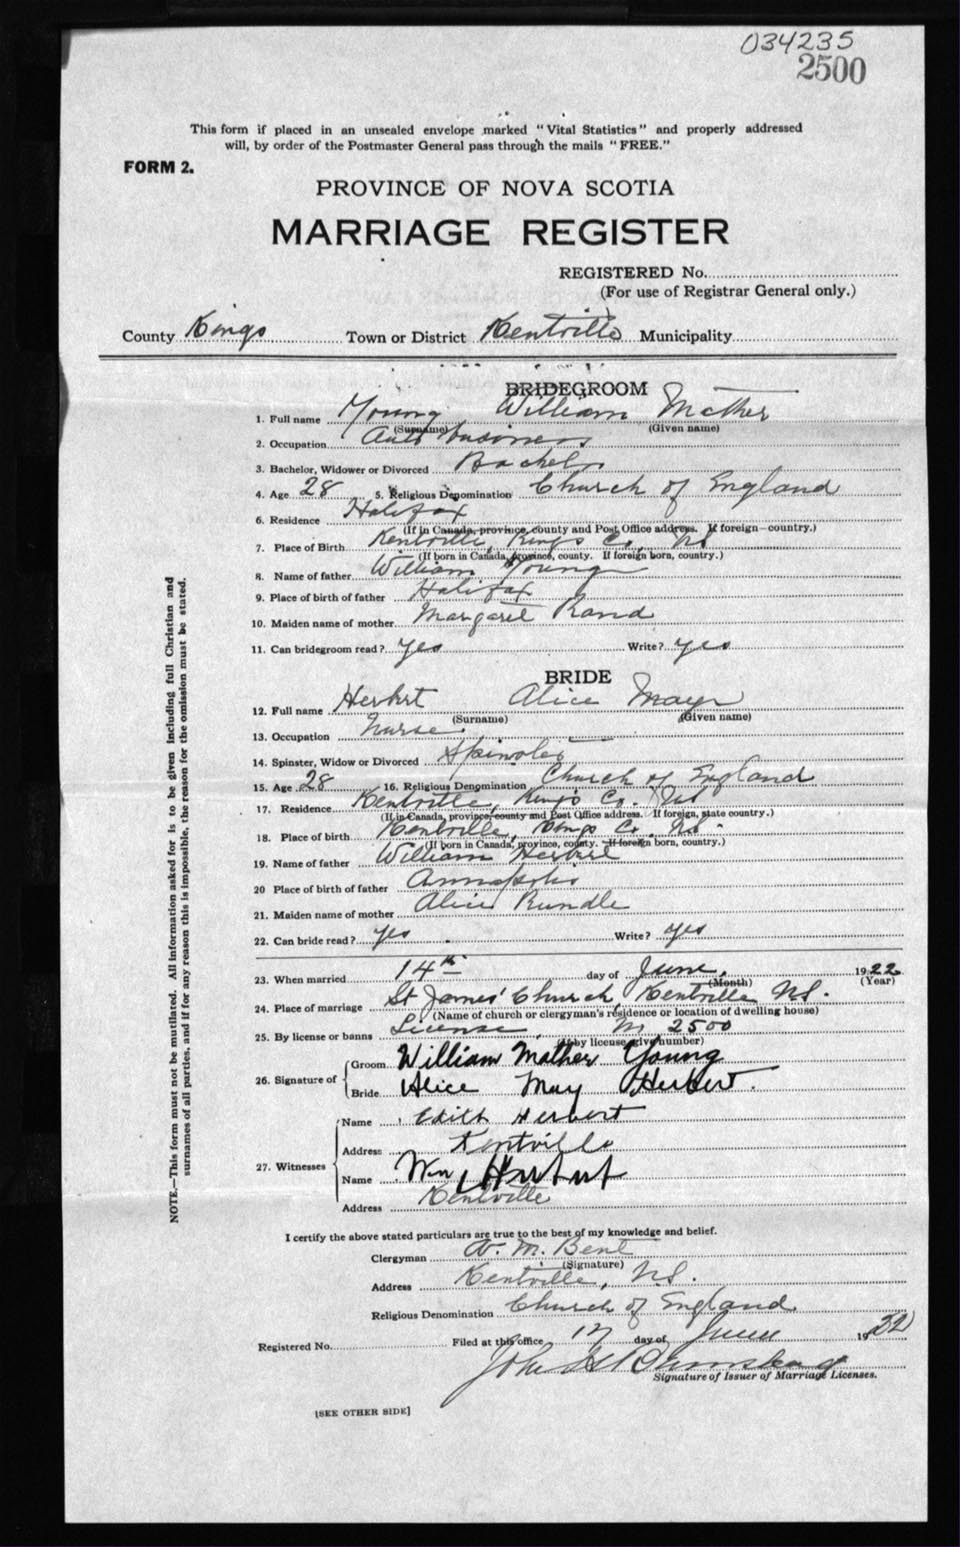 034235
2500
This form if placed in an unsealed envelope marked "Vital Statistics" and properly addressed
will, by order of the Postmaster General pass through the mails "FREE."
FORM 2.
PROVINCE OF NOVA SCOTIA
MARRIAGE REGISTER
REGISTERED No.
(For use of Registrar General only.)
County Kings Town or District Kentville Municipality
BRIDEGROOM
1. Full name Young William Mather
(Surname) (Given name)
2. Occupation Auto business
3. Bachelor, Widower or Divorced Bachelor
4. Age 28 5. Religious Denomination Church of England
6. Residence Halifax
(If in Canada, province, county and Post Office address. If foreign—country.)
7. Place of Birth Kentville, Kings Co., NS
(If born in Canada, province, county. If foreign born, country.)
8. Name of father William Young
9. Place of birth of father Halifax
10. Maiden name of mother Margaret Rand
11. Can bridegroom read? yes Write? yes
BRIDE
12. Full name Herbert Alice May
(Surname) (Given name)
13. Occupation Nurse
14. Spinster, Widow or Divorced Spinster
15. Age 28 16. Religious Denomination Church of England
17. Residence Kentville, Kings Co. NS
(If in Canada, province, county and Post Office address. If foreign, state country.)
18. Place of birth Kentville, Kings Co. NS.
(If born in Canada, province, county. If foreign born, country.)
19. Name of father William Herbert
20 Place of birth of father Annapolis
21. Maiden name of mother Alice Rundle
22. Can bride read? yes Write? yes
23. When married 14th day of June, 1922
(Month) (Year)
24. Place of marriage St James' Church, Kentville NS.
(Name of church or clergyman's residence or location of dwelling house)
25. By license or banns License, 2500
(If by license give number)
26. Signature of Groom William Mather Young
Bride Alice May Herbert.
27. Witnesses
Name Edith Herbert
Address Kentville
Name Wm Herbert
Address Kentville
I certify the above stated particulars are true to the best of my knowledge and belief.
Clergyman A. M. Bent
(Signature)
Address Kentville, NS.
Religious Denomination Church of England
Registered No. Filed at this office 17 day of June 19
Signature of Issuer of Marriage Licenses.
[SEE OTHER SIDE]
NOTE.—This form must not be mutilated. All information asked for is to be given including full Christian and
surnames of all parties, and if for any reason this is impossible, the reason for the omission must be stated.